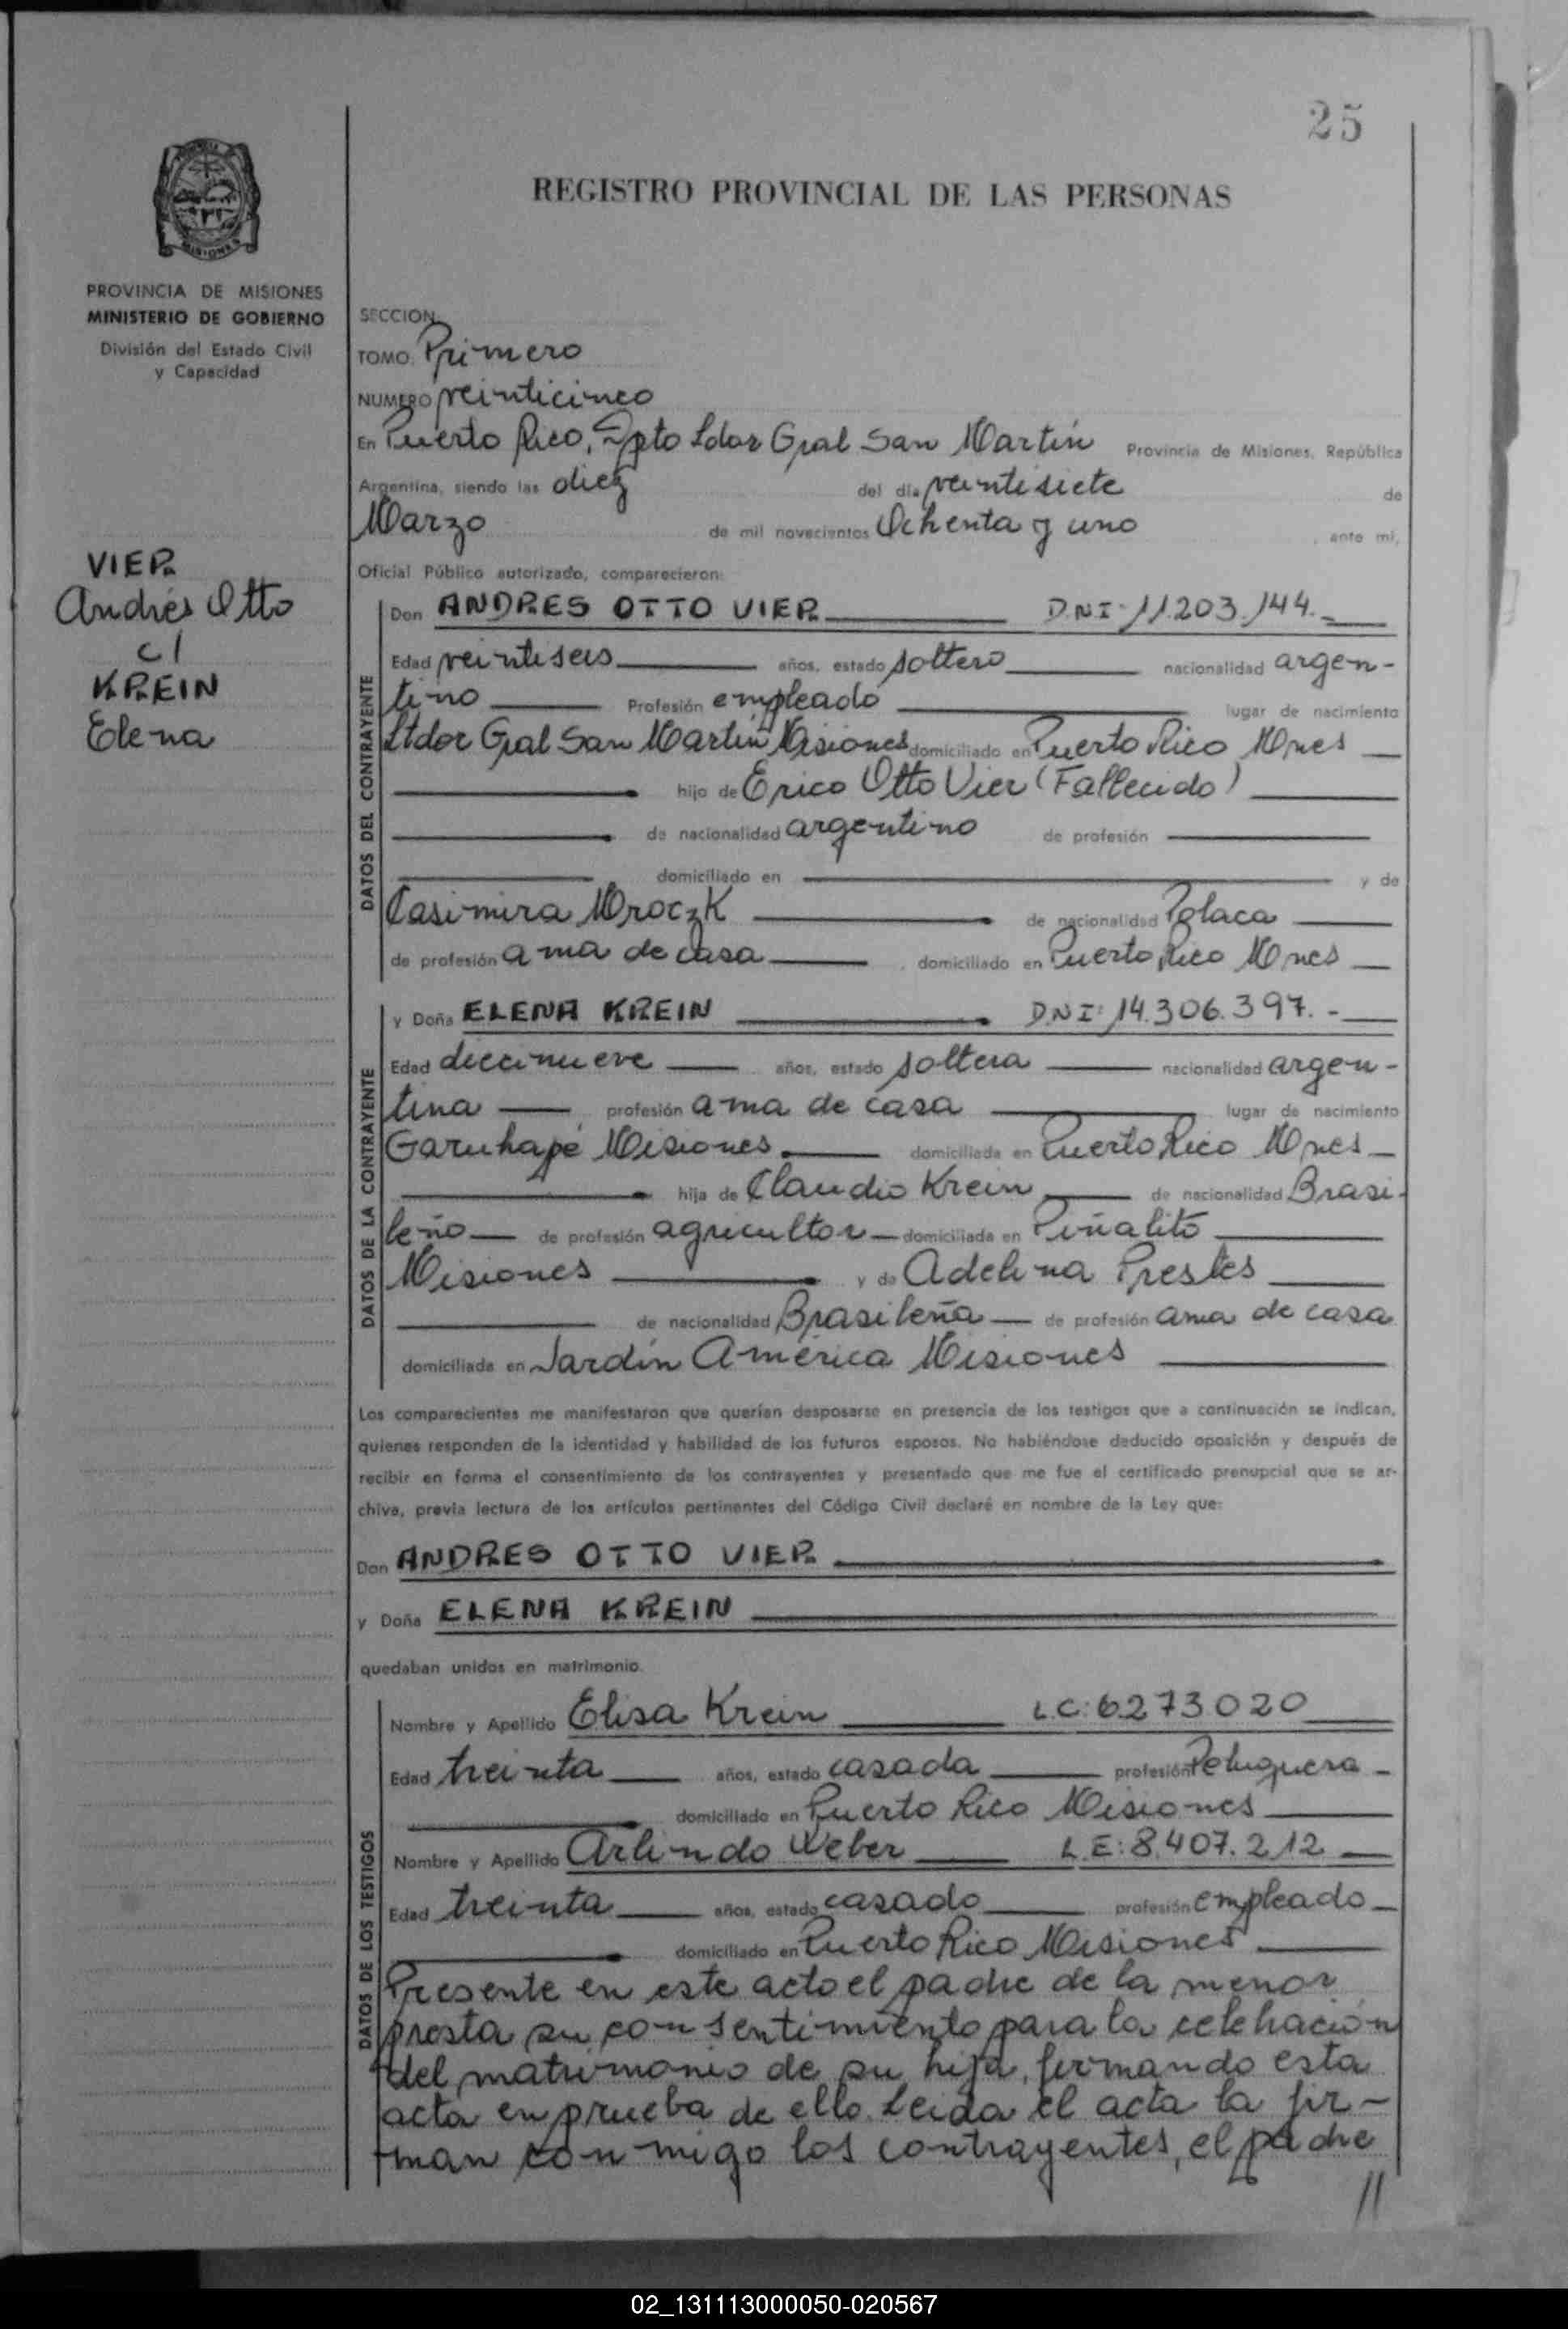 25
REGISTRO PROVINCIAL DE LAS PERSONAS
MISIONES
PROVINCIA DE MISIONES
MINISTERIO DE GOBIERNO
División del Estado Civil
y Capacidad
VIER
Andrés Otto
c/
KREIN
Elena
SECCION
TOMO Primero
NUMERO veinticinco
En Puerto Rico, Dpto Ldor Gral San Martín Provincia de Misiones, República
Argentina, siendo las diez del día veintisiete de
Marzo de mil novecientos Ochenta y uno , ante mí,
Oficial Público autorizado, comparecieron:
DATOS DEL CONTRAYENTE
Don ANDRES OTTO VIER D.N.I: 11.203.144.-
Edad veintiseis años, estado soltero nacionalidad argen-
tino Profesión empleado lugar de nacimiento
Ltdor Gral San Martín Misiones domiciliado en Puerto Rico Mnes
hijo de Erico Otto Vier (Fallecido)
de nacionalidad argentino de profesión
domiciliado en y de
Casimira Mroczk de nacionalidad Polaca
de profesión ama de casa , domiciliado en Puerto Rico Mnes
DATOS DE LA CONTRAYENTE
y Doña ELENA KREIN D.N.I: 14.306.397.-
Edad diecinueve años, estado soltera nacionalidad argen-
tina profesión ama de casa lugar de nacimiento
Garuhapé Misiones domiciliada en Puerto Rico Mnes
hija de Claudio Krein de nacionalidad Brasi-
leño de profesión agricultor domiciliada en Piñalito
Misiones y de Adelina Prestes
de nacionalidad Brasileña de profesión ama de casa
domiciliada en Jardín América Misiones
Los comparecientes me manifestaron que querían desposarse en presencia de los testigos que a continuación se indican,
quienes responden de la identidad y habilidad de los futuros esposos. No habiéndose deducido oposición y después de
recibir en forma el consentimiento de los contrayentes y presentado que me fue el certificado prenupcial que se ar-
chiva, previa lectura de los artículos pertinentes del Código Civil declaré en nombre de la Ley que:
Don ANDRES OTTO VIER
y Doña ELENA KREIN
quedaban unidos en matrimonio.
DATOS DE LOS TESTIGOS
Nombre y Apellido Elisa Krein L.C: 6273020
Edad treinta años, estado casada profesión Peluquera
domiciliado en Puerto Rico Misiones
Nombre y Apellido Arlindo Weber L.E: 8.407.212
Edad treinta años, estado casado profesión empleado
domiciliado en Puerto Rico Misiones
Presente en este acto el padre de la menor
presta su consentimiento para la celebración
del matrimonio de su hija, firmando esta
acta en prueba de ello. Leida el acta la fir-
man conmigo los contrayentes, el padre
//
02_131113000050-020567